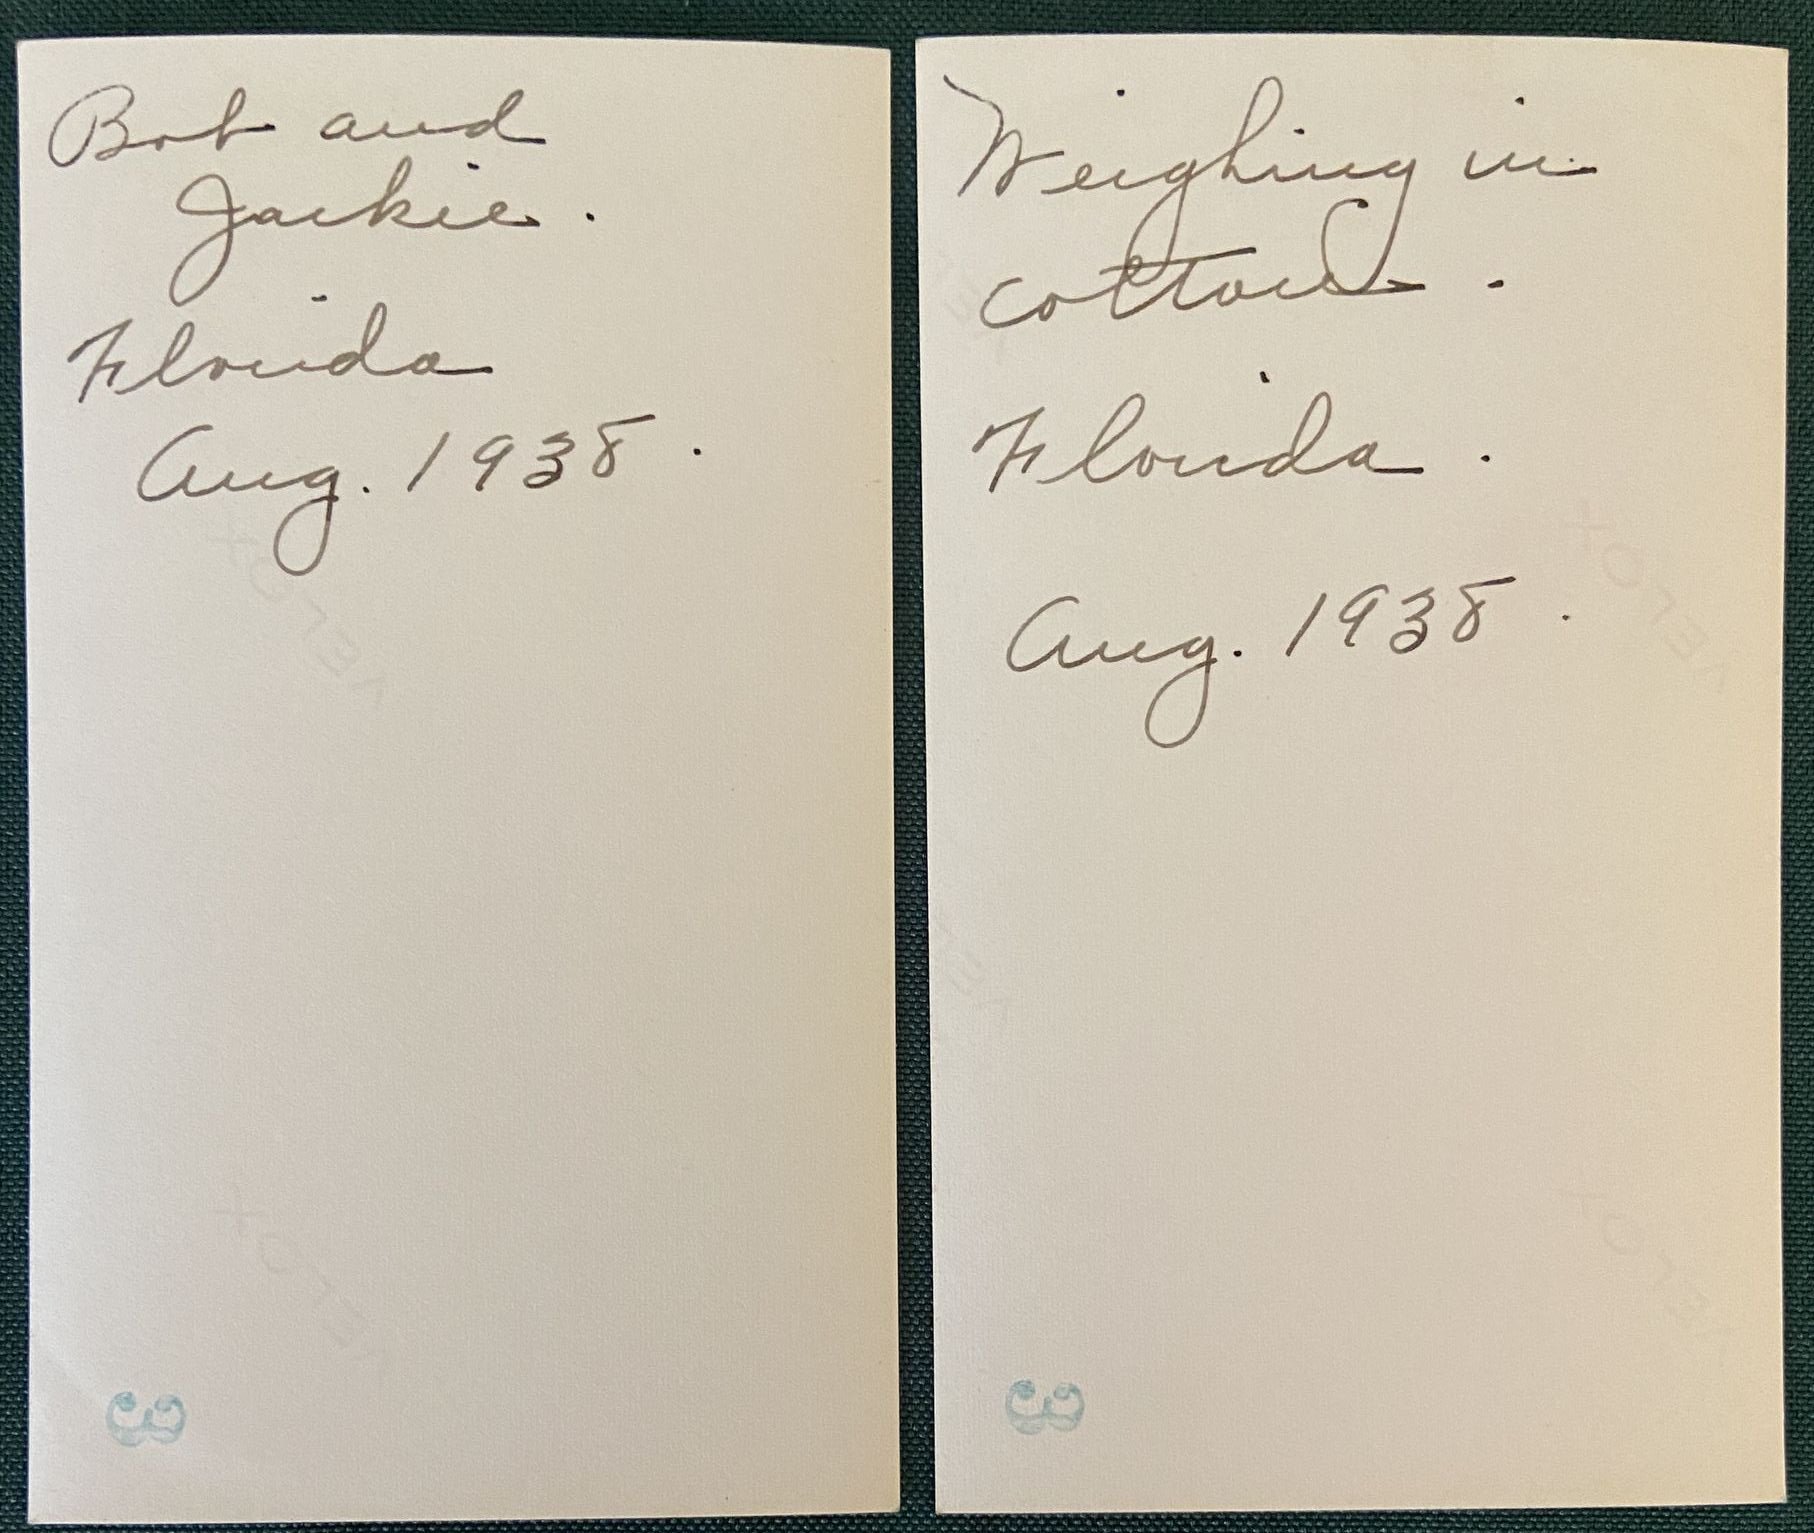 Bob and
Jackie.
Florida
Aug. 1938.
VELOX
VELOX
3
Weighing in
cotton.
Florida.
Aug. 1938.
VELOX
VELOX
3